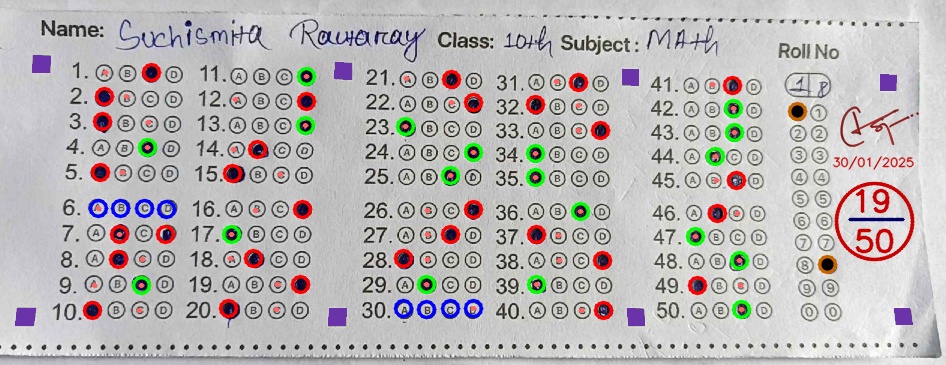 Name: Suchismita Rautaray Class: 10th Subject: MAth
Roll No
1. A B D
2. B C D
3. B C D
4. A B D
5. B C D
6. A B C D
7. A C
8. A C D
9. A B D
10. B C D
11. A B C
12. A B C
13. A B C
14. A C D
15. B C D
16. A B C
17. B C D
18. A C D
19. A B C
20. B C D
21. A B D
22. A B C
23. B C D
24. A B C
25. A B D
26. A B C
27. A B D
28. B C D
29. A C D
30. A B C D
31. A B D
32. B C D
33. A B C
34. B C D
35. B C D
36. A B D
37. B C D
38. A B C
39. B C D
40. A B C
41. A B D
42. A B D
43. A B D
44. A C D
45. A B D
46. A C D
47. B C D
48. A B D
49. B C D
50. A B D
1 8
1
2 2
3 3
4 4
5 5
6 6
7 7
8
9 9
0 0
30/01/2025
19
50